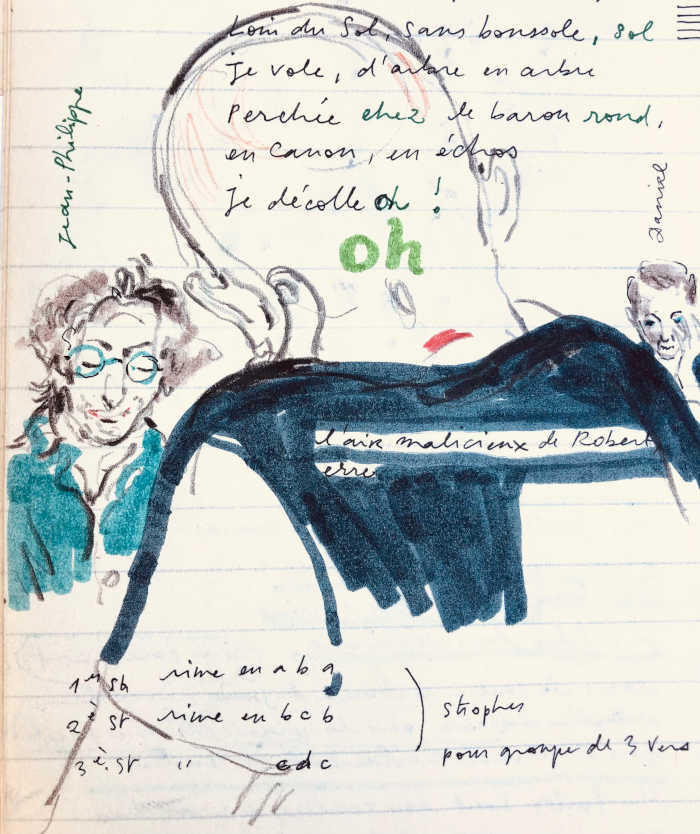 Loin du Sol, sans boussole, sol
je vole, d'arbre en arbre
Perchée chez le baron rond,
en canon, en échos
je décolle oh !
oh
Jean-Philippe
Daniel
l'air malicieux de Robert
erre
1er st rime en a b a
2è st rime en b c b
3è. st " cdc
strophes
pour groupe de 3 vers